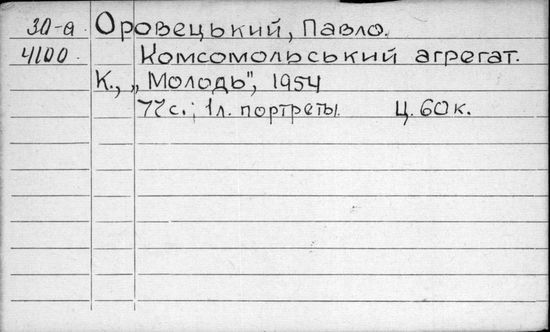 30-а Оровецький, Павло.
4100 Комсомольський агрегат.
К., „Молодь", 1954
77с.; 1л. портреты. Ц. 60к.